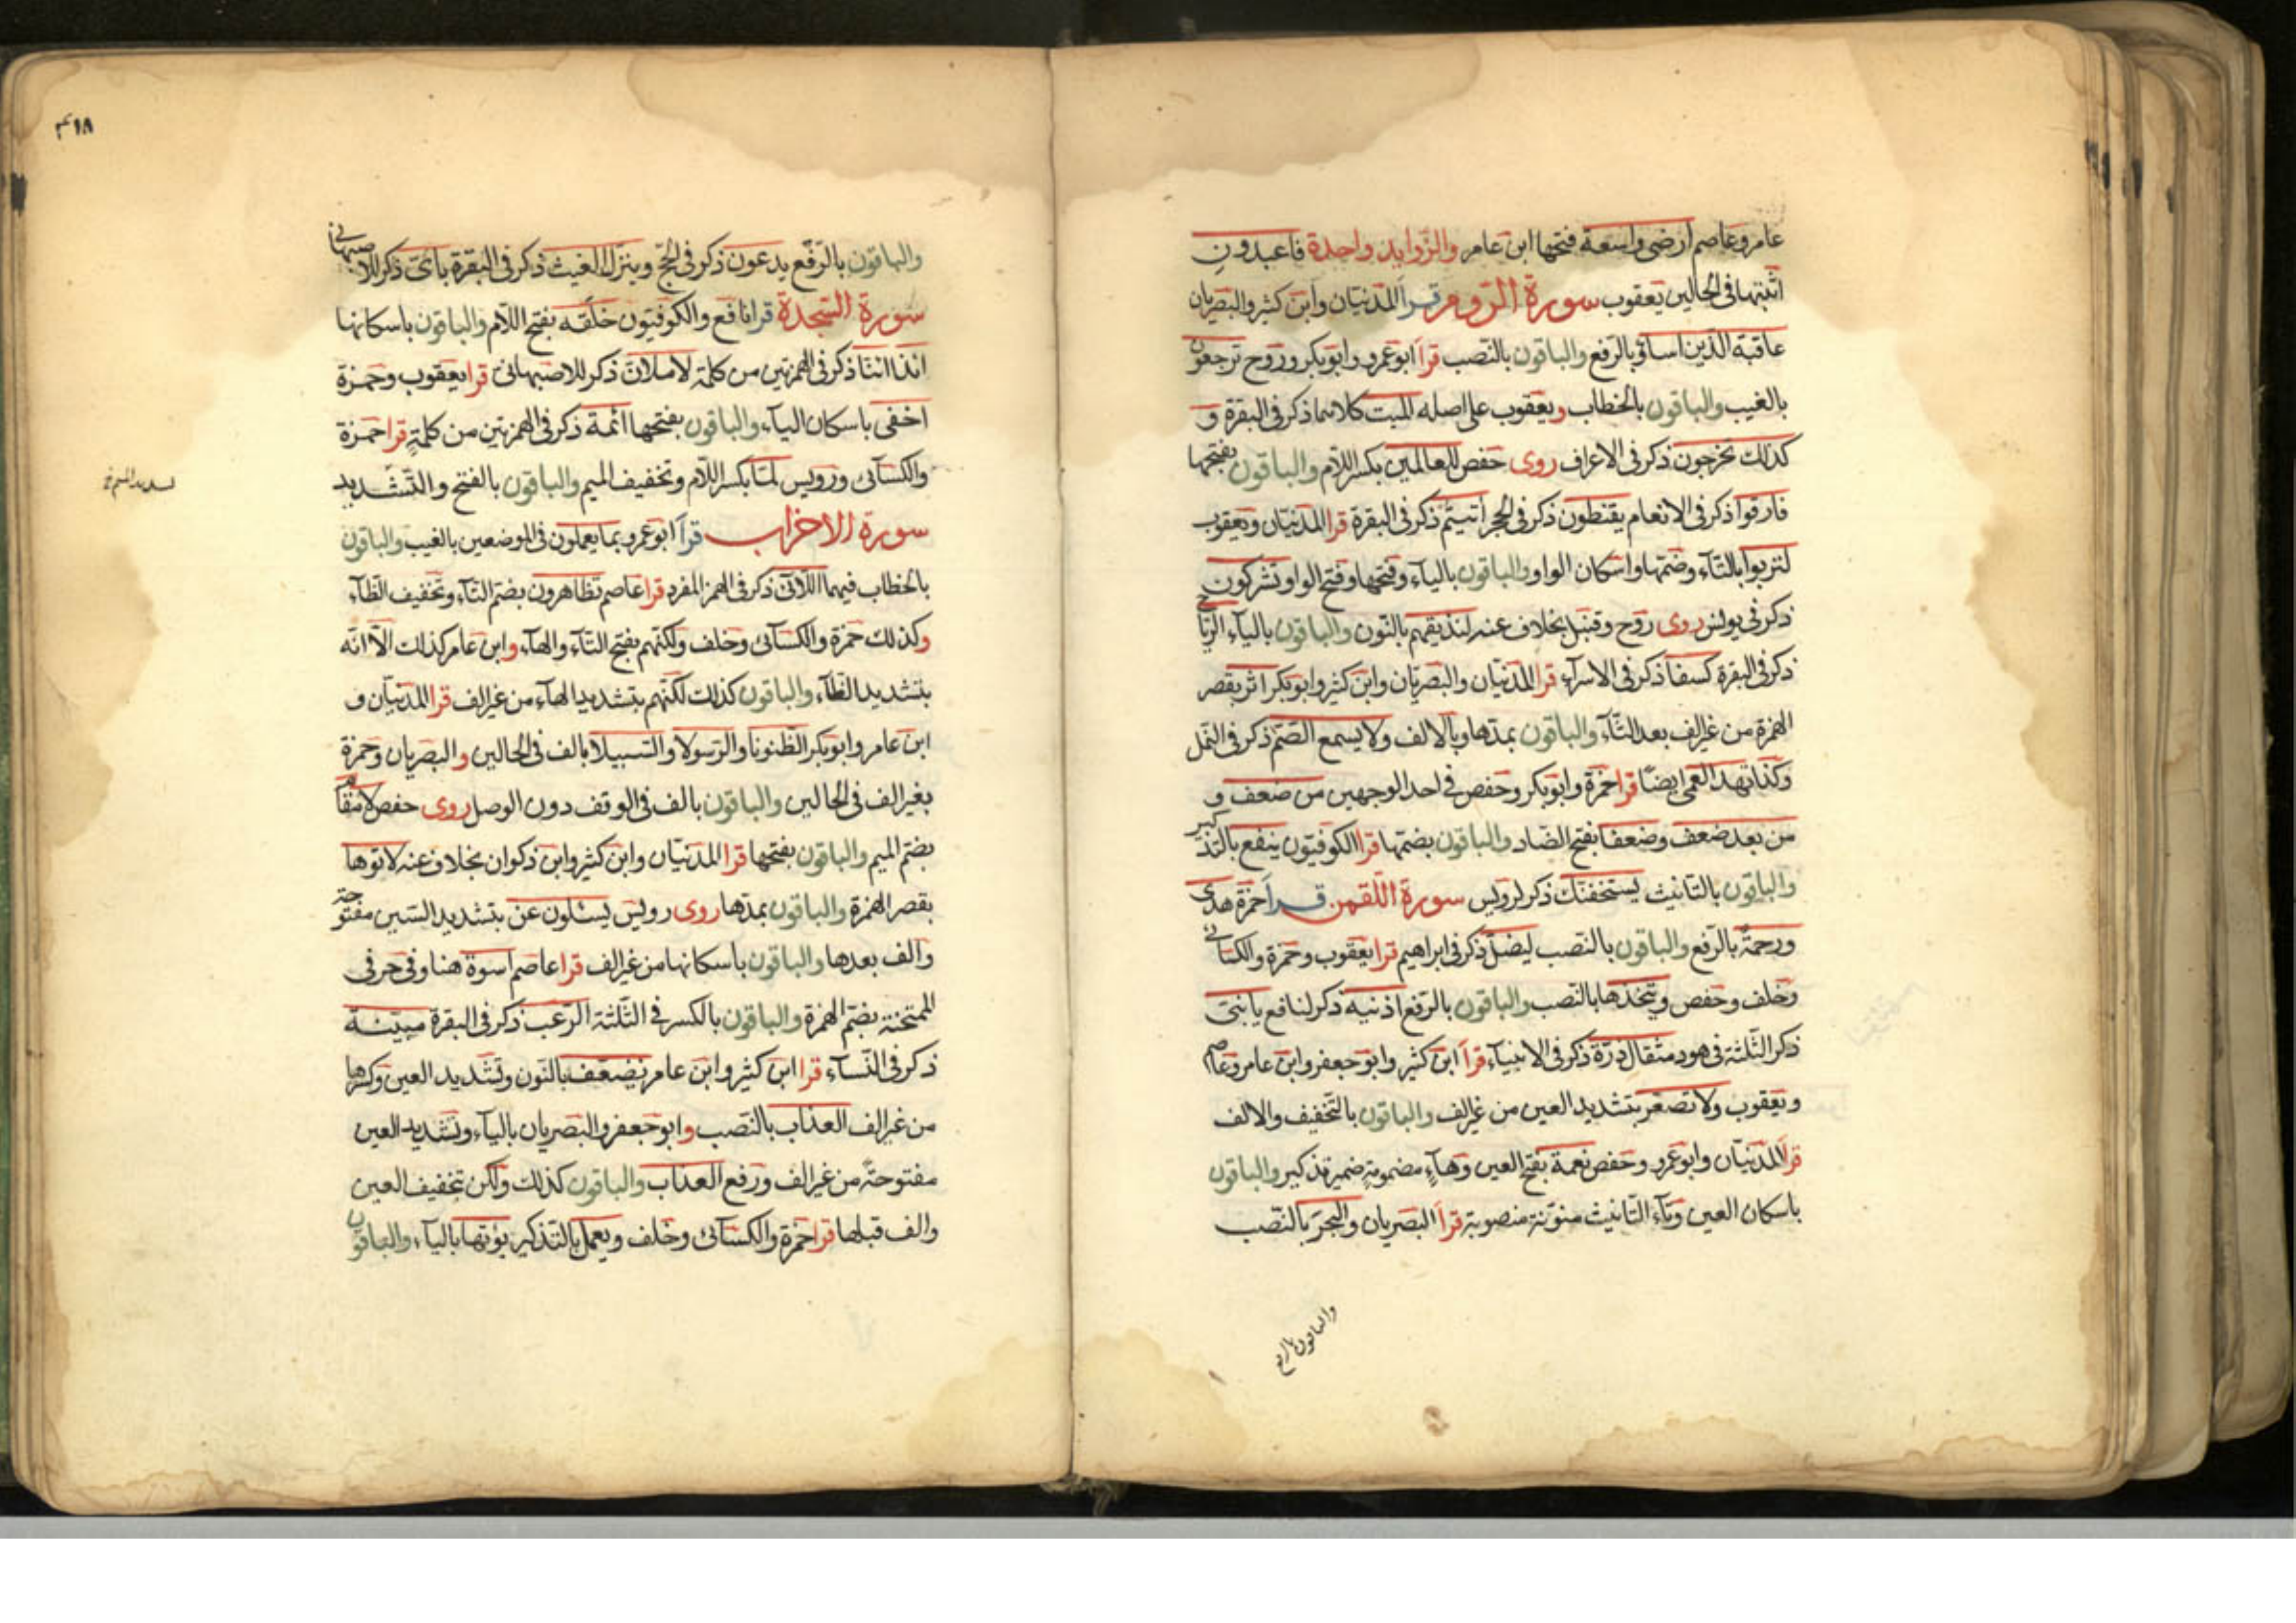 عامر وعاصم ارضى واسعة فتحها ابن عامر والزوايد واحدة فاعبدون
اثبتها فى الحالين يعقوب سورة الروم قرأ المدنيان وابن كثير والبصريان
عاقبة الذين اساؤ بالرفع والباقون بالنصب قرأ ابو عمرو وابو بكر وروح ترجعون
بالغيب والباقون بالخطاب ويعقوب على اصله الميت كلاهما ذكر فى البقرة و
كذلك تخرجون ذكر فى الاعراف روى حفص للعالمين بكسر اللام والباقون بفتحها
فارقوا ذكر فى الانعام يقنطون ذكر فى الحجر اتيتم ذكر فى البقرة قرا المدنيان ويعقوب
لتربوا بالتاء وضمها واسكان الواو والباقون بالياء وفتحها وفتح الواو تشركون
ذكر فى يونس روى روح وقنبل بخلاف عنه لنذيقهم بالنون والباقون بالياء الرياح
ذكر فى البقرة كسفا ذكر فى الاسراء قرا المدنيان والبصريان وابن كثير وابو بكر اثر بقصر
الهمزة من غير الف بعد الثاء والباقون بمدها وبالالف ولا يسمع الصم ذكر فى النمل
وكذا تهد العمى ايضا قرا حمزة وابو بكر وحفص فى احد الوجهين من ضعف و
من بعد ضعف وضعفا بفتح الضاد والباقون بضمها قرا الكوفيون ينفع بالتذكير
والباقون بالتانيث يستخفنك ذكر لرويس سورة اللقمن قرأ حمزة هدى
ورحمة بالرفع والباقون بالنصب ليضل ذكر فى ابراهيم قرا يعقوب وحمزة والكسائى
وخلف وحفص ويتخذها بالنصب والباقون بالرفع اذنيه ذكر لنافع يا بنى
ذكر الثلثة فى هود مثقال ذرة ذكر فى الانبياء قرأ ابن كثير وابو جعفر وابن عامر وعاصم
ويعقوب ولا تصعر بتشديد العين من غير الف والباقون بالتخفيف والالف
قرأ المدنيان وابو عمرو وحفص نعمة بفتح العين وهاء مضمومة ضمير تذكير والباقون
باسكان العين وتاء التانيث منونة منصوبة قرأ البصريان والبحر بالنصب
والباقون بالرفع
٣١٨
والباقون بالرفع يدعون ذكر فى الحج وينزل الغيث ذكر فى البقرة باى ذكر للاصبهانى
سورة السجدة قرا نافع والكوفيون خلقه بفتح اللام والباقون باسكانها
انذا اننا ذكر فى الهمزتين من كلمة لاملان ذكر للاصبهانى قرا يعقوب وحمزة
اخفى باسكان الياء والباقون بفتحها ائمة ذكر فى الهمزتين من كلمة قرا حمزة
والكسائى ورويس لما بكسر اللام وتخفيف الميم والباقون بالفتح والتشديد
سورة الاحزاب قرأ ابو عمرو بما يعملون فى الموضعين بالغيب والباقون
بالخطاب فيهما اللائى ذكر فى الهمز المفرد قرا عاصم تظاهرون بضم التاء وتخفيف الظاء
وكذلك حمزة والكسائى وخلف ولكنهم بفتح التاء والهاء وابن عامر كذلك الا انه
بتشديد الظاء والباقون كذلك لكنهم بتشديد الهاء من غير الف قرا المدنيان و
ابن عامر وابو بكر الظنونا والرسولا والسبيلا بالف فى الحالين والبصريان وحمزة
بغير الف فى الحالين والباقون بالف فى الوقف دون الوصل روى حفص لا مقام
بضم الميم والباقون بفتحها قرا المدنيان وابن كثير وابن ذكوان بخلاف عنه لاتوها
بقصر الهمزة والباقون بمدها روى رويس يسئلون عن بتشديد السين مفتوحة
والف بعدها والباقون باسكانها من غير الف قرا عاصم اسوة هنا وفى حرفى
الممتحنة بضم الهمزة والباقون بالكسر فى الثلثة الرعب ذكر فى البقرة مبينة
ذكر فى النساء قرا ابن كثير وابن عامر نضعف بالنون وتشديد العين وكسرها
من غير الف العذاب بالنصب وابو جعفر والبصريان بالياء وتشديد العين
مفتوحة من غير الف ورفع العذاب والباقون كذلك ولكن بتخفيف العين
والف قبلها قرا حمزة والكسائى وخلف ويعمل بالتذكير يؤتها بالياء والباقون